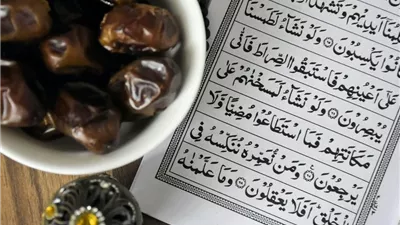 اَيْدِيْهِمْ وَتَشْهَدُ
يَكْسِبُوْنَ ۝ وَلَوْ نَشَآءُ لَطَمَسْنَا
عَلٰٓى اَعْيُنِهِمْ فَاسْتَبَقُوا الصِّرَاطَ فَاَنّٰى
يُبْصِرُوْنَ ۝ وَلَوْ نَشَآءُ لَمَسَخْنٰهُمْ عَلٰى
مَكَانَتِهِمْ فَمَا اسْتَطَاعُوْا مُضِيًّا وَّلَا
يَرْجِعُوْنَ ۝ وَمَنْ نُّعَمِّرْهُ نُنَكِّسْهُ فِى
الْخَلْقِ ؕ اَفَلَا يَعْقِلُوْنَ ۝ وَمَا عَلَّمْنٰهُ